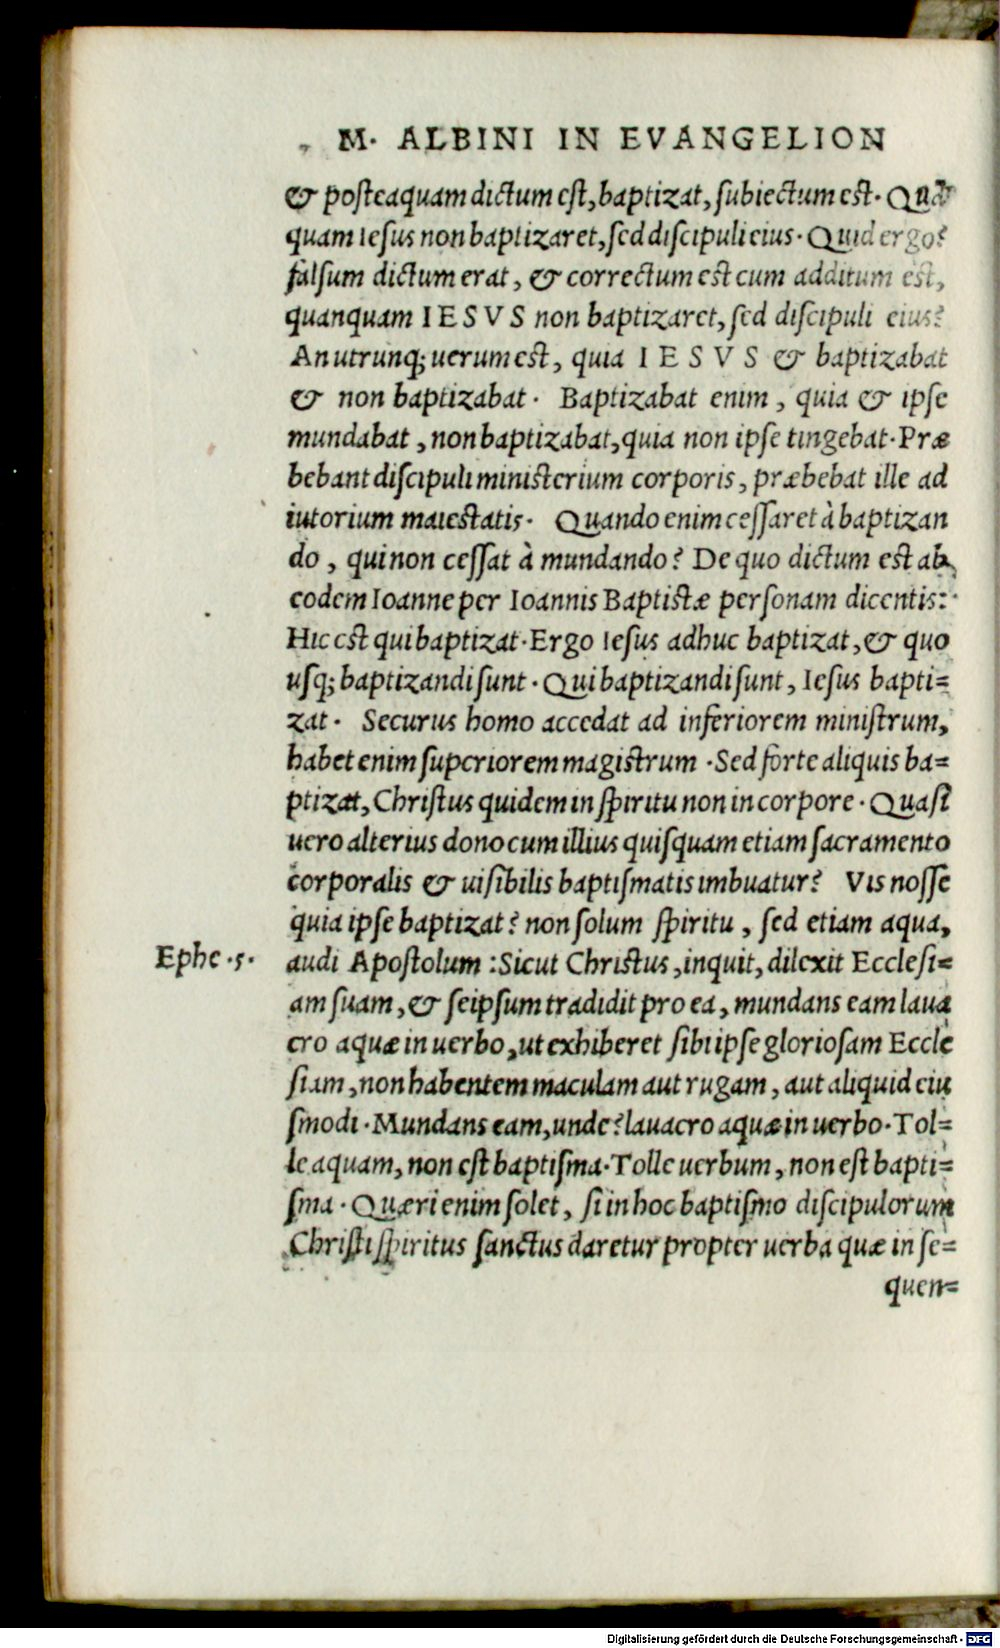 M. ALBINI IN EVANGELION
& posteaquam dictum est, baptizat, subiectum est. Quã
quam Iesus non baptizaret, sed discipuli eius. Quid ergo?
falsum dictum erat, & correctum est cum additum est,
quanquam IESVS non baptizaret, sed discipuli eius?
An utrunq; uerum est, quia IESVS & baptizabat
& non baptizabat. Baptizabat enim, quia & ipse
mundabat, non baptizabat, quia non ipse tingebat. Præ
bebant discipuli ministerium corporis, præbebat ille ad
iutorium maiestatis. Quando enim cessaret à baptizan
do, qui non cessat à mundando? De quo dictum est ab
eodem Ioanne per Ioannis Baptistæ personam dicentis:
Hic est qui baptizat. Ergo Iesus adhuc baptizat, & quo
usq; baptizandi sunt. Qui baptizandi sunt, Iesus bapti=
zat. Securus homo accedat ad inferiorem ministrum,
habet enim superiorem magistrum. Sed forte aliquis ba=
ptizat, Christus quidem in spiritu non in corpore. Quasi
uero alterius dono cum illius quisquam etiam sacramento
corporalis & uisibilis baptismatis imbuatur? Vis nosse
quia ipse baptizat? non solum spiritu, sed etiam aqua,
Ephe.5. audi Apostolum: Sicut Christus, inquit, dilexit Ecclesi=
am suam, & seipsum tradidit pro ea, mundans eam laua
cro aquæ in uerbo, ut exhiberet sibi ipse gloriosam Eccle
siam, non habentem maculam aut rugam, aut aliquid eiu
smodi. Mundans eam, unde? lauacro aquæ in uerbo. Tol=
le aquam, non est baptisma. Tolle uerbum, non est bapti=
sma. Quæri enim solet, si in hoc baptismo discipulorum
Christi spiritus sanctus daretur propter uerba quæ in se=
quen=
Digitalisierung gefördert durch die Deutsche Forschungsgemeinschaft - DFG